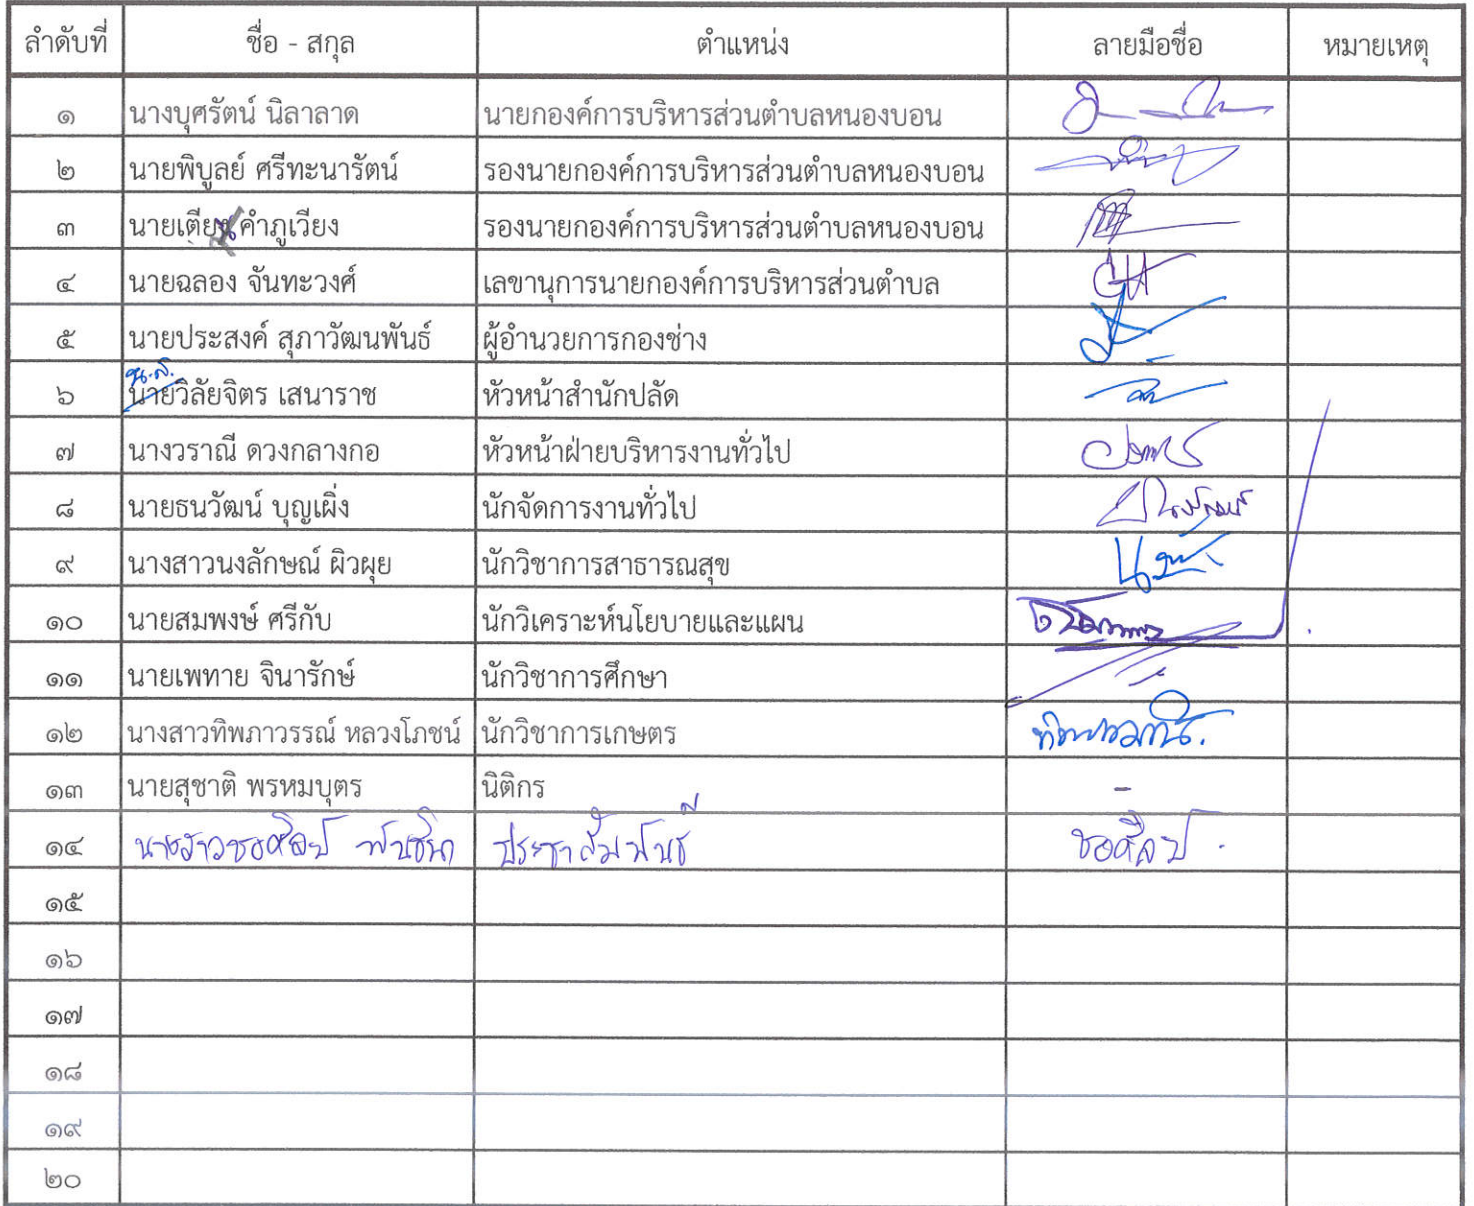 ลำดับที่ ชื่อ - สกุล ตำแหน่ง ลายมือชื่อ หมายเหตุ
๑ นางบุศรัตน์ นิลาลาด นายกองค์การบริหารส่วนตำบลหนองบอน
๒ นายพิบูลย์ ศรีทะนารัตน์ รองนายกองค์การบริหารส่วนตำบลหนองบอน
๓ นายเตียน คำภูเวียง รองนายกองค์การบริหารส่วนตำบลหนองบอน
๔ นายฉลอง จันทะวงศ์ เลขานุการนายกองค์การบริหารส่วนตำบล
๕ นายประสงค์ สุภาวัฒนพันธ์ ผู้อำนวยการกองช่าง
น.ส.
๖ นายวิลัยจิตร เสนาราช หัวหน้าสำนักปลัด
๗ นางวราณี ดวงกลางกอ หัวหน้าฝ่ายบริหารงานทั่วไป
๘ นายธนวัฒน์ บุญเผิ่ง นักจัดการงานทั่วไป
๙ นางสาวนงลักษณ์ ผิวผุย นักวิชาการสาธารณสุข
๑๐ นายสมพงษ์ ศรีกับ นักวิเคราะห์นโยบายและแผน
๑๑ นายเพทาย จินารักษ์ นักวิชาการศึกษา
๑๒ นางสาวทิพภาวรรณ์ หลวงโภชน์ นักวิชาการเกษตร
๑๓ นายสุชาติ พรหมบุตร นิติกร -
๑๔ นางสาวชอศิลป์ ประชาสัมพันธ์ ชอศิลป์.
๑๕
๑๖
๑๗
๑๘
๑๙
๒๐